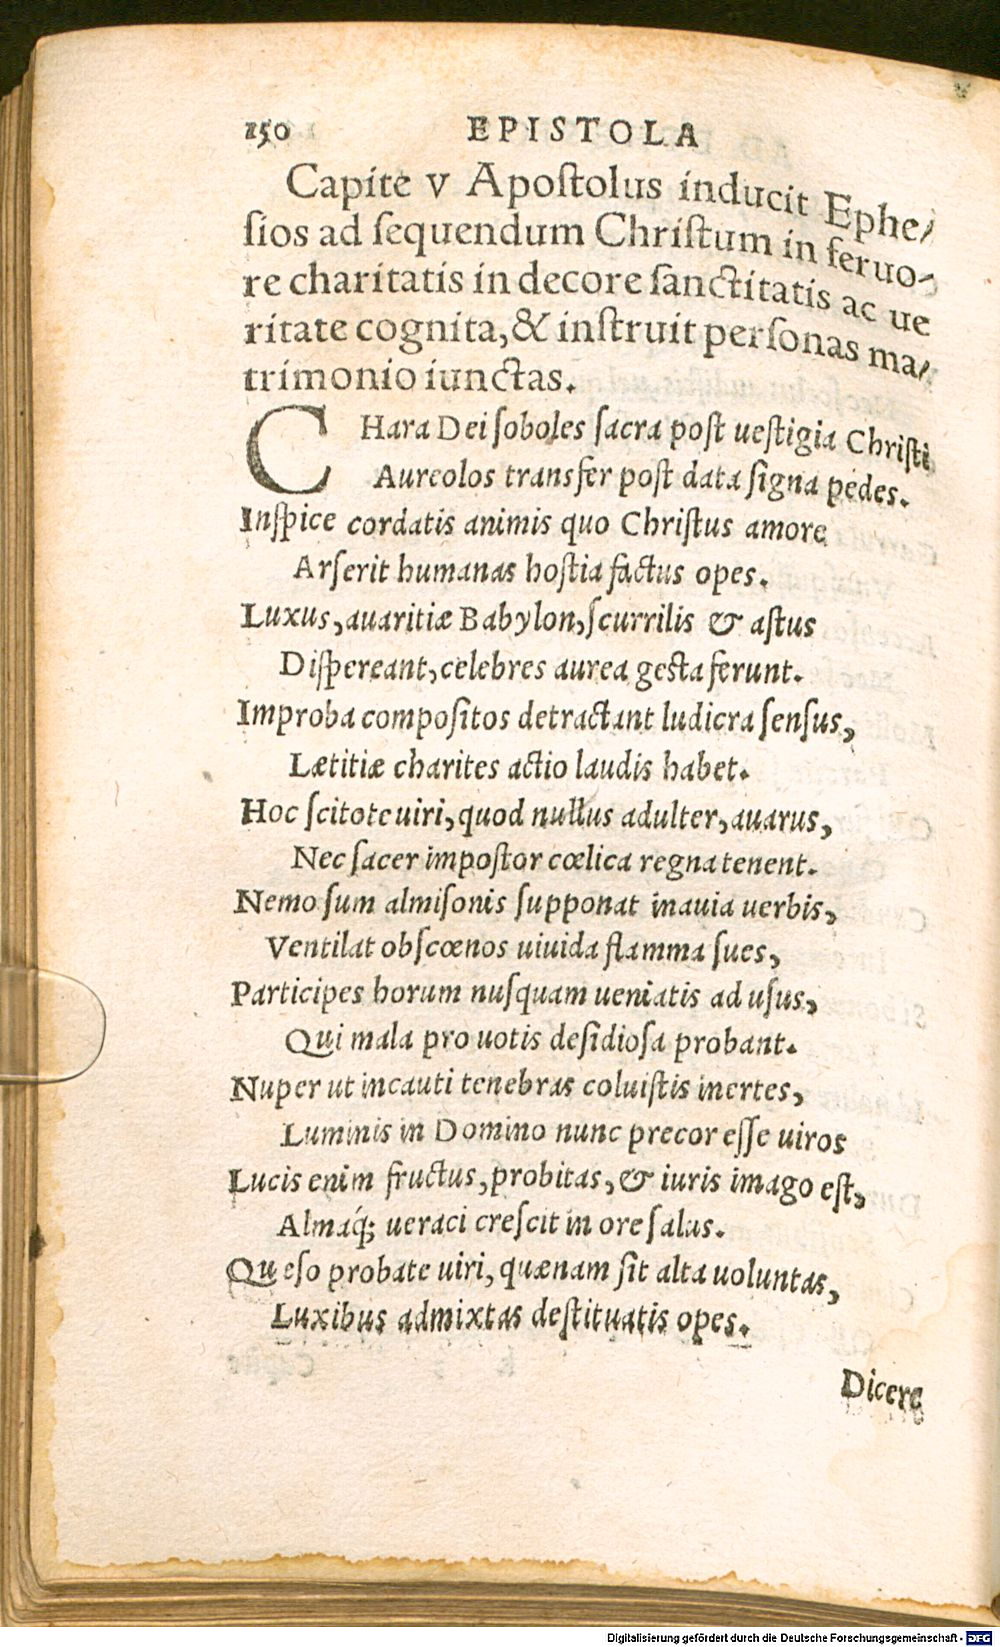 150 EPISTOLA
Capite v Apostolus inducit Ephe/
sios ad sequendum Christum in feruo-
re charitatis in decore sanctitatis ac ue
ritate cognita, & instruit personas ma/
trimonio iunctas.
CHara Dei soboles sacra post uestigia Christi
Aureolos transfer post data signa pedes.
Inspice cordatis animis quo Christus amore
Arserit humanas hostia factus opes.
Luxus, auaritiæ Babylon, scurrilis & astus
Dispereant, celebres aurea gesta ferunt.
Improba compositos detractant ludicra sensus,
Lætitiæ charites actio laudis habet.
Hoc scitote uiri, quod nullus adulter, auarus,
Nec sacer impostor cœlica regna tenent.
Nemo sum almisonis supponat inauia uerbis,
Ventilat obscœnos uiuida flamma sues,
Participes horum nusquam ueniatis ad usus,
Qui mala pro uotis desidiosa probant.
Nuper ut incauti tenebras coluistis inertes,
Luminis in Domino nunc precor esse uiros
Lucis enim fructus, probitas, & iuris imago est,
Almaq́; ueraci crescit in ore salus.
Quęso probate uiri, quænam sit alta uoluntas,
Luxibus admixtas destituatis opes.
Dicere
Digitalisierung gefördert durch die Deutsche Forschungsgemeinschaft - DFG